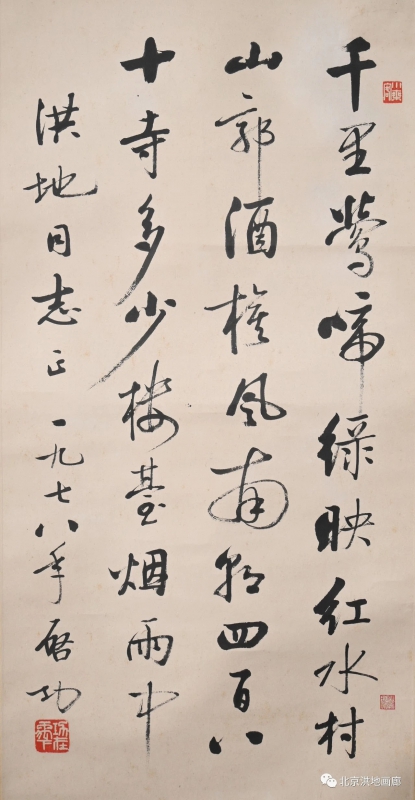 千里鶯啼绿映红水村
山郭酒旗风南朝四百八
十寺多少楼臺烟雨中
洪地同志正 一九七八年 启功
北京洪地画廊